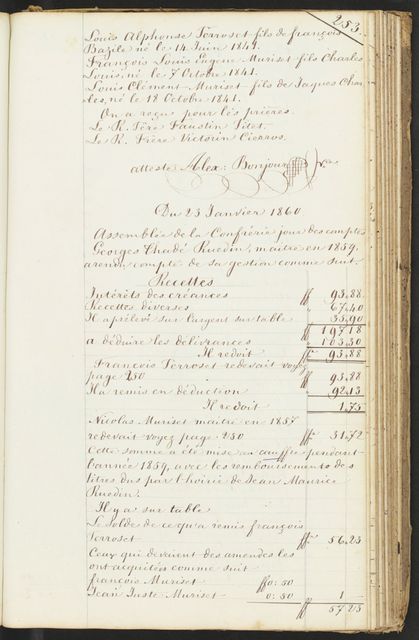 253.
Louis Alphonse Terroset fils de françois
Bazile né le 14 Juin 1841.
François Louis Eugene Muriset fils Charles
Louis, né le 7 Octobre 1841.
Louis Clément Muriset fils de Jaques Char
les, né le 18 Octobre 1841.
On a reçu pour les prières
Le R. Père Faustin
Le R. Frère Victorin
atteste Alex: Bonjour
Du 23 Janvier 1860
Assemblée de la Confrérie jour des comptes
Georges Ruedin, maitre en 1859,
a rendu compte de sa gestion comme suit.
Recettes
Intérêts des créances ff 93,88
Recettes diverses 67,40
Il a prélevé sur l'argent sur table 35,90
ff 197,18
a déduire les délivrances 103,30
Il redoit ff 93,88
François Terroset redevait voyez
page 250 ff 93,88
Il a remis en déduction 92,13
Il redoit 1,75
Nicolas Muriset maitre en 1857
redevait voyez page 250 ff 31,72
Cette somme a été mise en pendant
l'année 1859, avec les remboursements des
titres dus par l'hoirie de Jean Maurice
Ruedin.
Il y a sur table
Le solde de ce qu'a remis françois
Terroset ff 56,25
Ceux qui devaient des amendes les
ont acquitées comme suit
françois Muriset ff 0:50
Jean Juste Muriset 0:50 1 —
ff 57,25